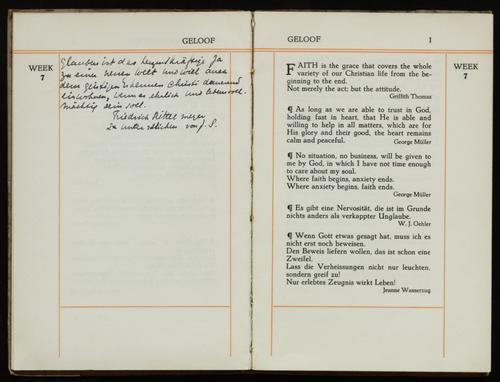 GELOOF
WEEK
7
Glauben ist das herzenskräftige Ja
zu einer neuen Welt und will aus
dem geistigen Erkennen Christi
einwohnen, wenn es ehrlich und lebensvoll
mächtig sein soll.
Friedrich Rittelmeyer
GELOOF I
WEEK
7
FAITH is the grace that covers the whole
variety of our Christian life from the be-
ginning to the end.
Not merely the act; but the attitude.
Griffith Thomas
¶ As long as we are able to trust in God,
holding fast in heart, that He is able and
willing to help in all matters, which are for
His glory and their good, the heart remains
calm and peaceful. George Müller
¶ No situation, no business, will be given to
me by God, in which I have not time enough
to care about my soul.
Where faith begins, anxiety ends.
Where anxiety begins, faith ends.
George Müller
¶ Es gibt eine Nervosität, die ist im Grunde
nichts anders als verkappter Unglaube.
W. J. Oehler
¶ Wenn Gott etwas gesagt hat, muss ich es
nicht erst noch beweisen.
Den Beweis liefern wollen, das ist schon eine
Zweifel.
Lass die Verheissungen nicht nur leuchten,
sondern greif zu!
Nur erlebtes Zeugnis wirkt Leben!
Jeanne Wasserzug